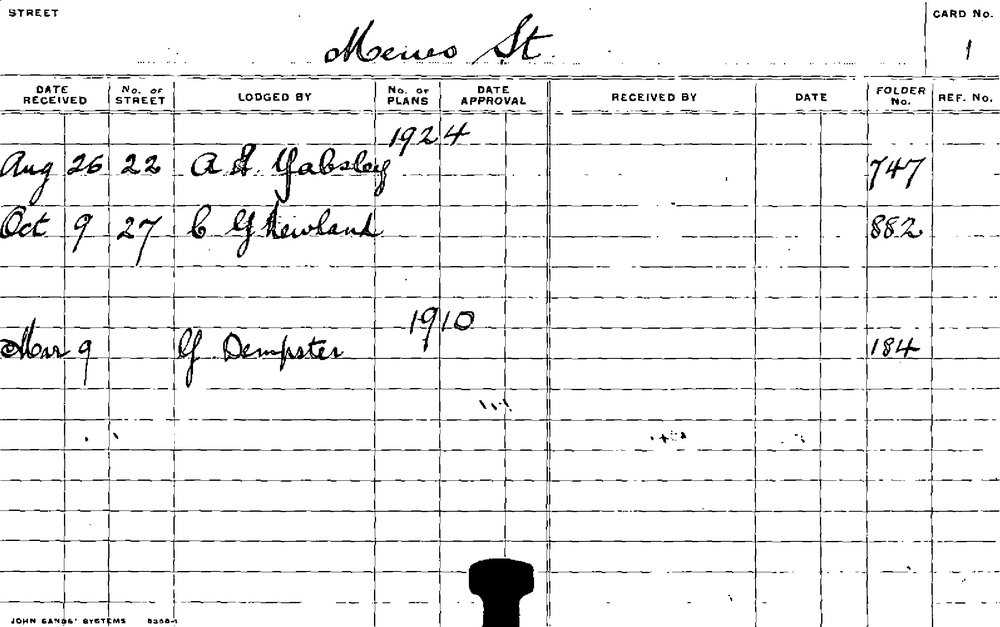 STREET
CARD No.
Mews St
1
DATE RECEIVED No. OF STREET LODGED BY No. OF PLANS DATE APPROVAL RECEIVED BY DATE FOLDER No. REF. No.
1924
Aug 26 22 A H. Yabsley 747
Oct 9 27 C G Newland 882
1910
Mar 9 G Dempster 184
JOHN SANDS' SYSTEMS